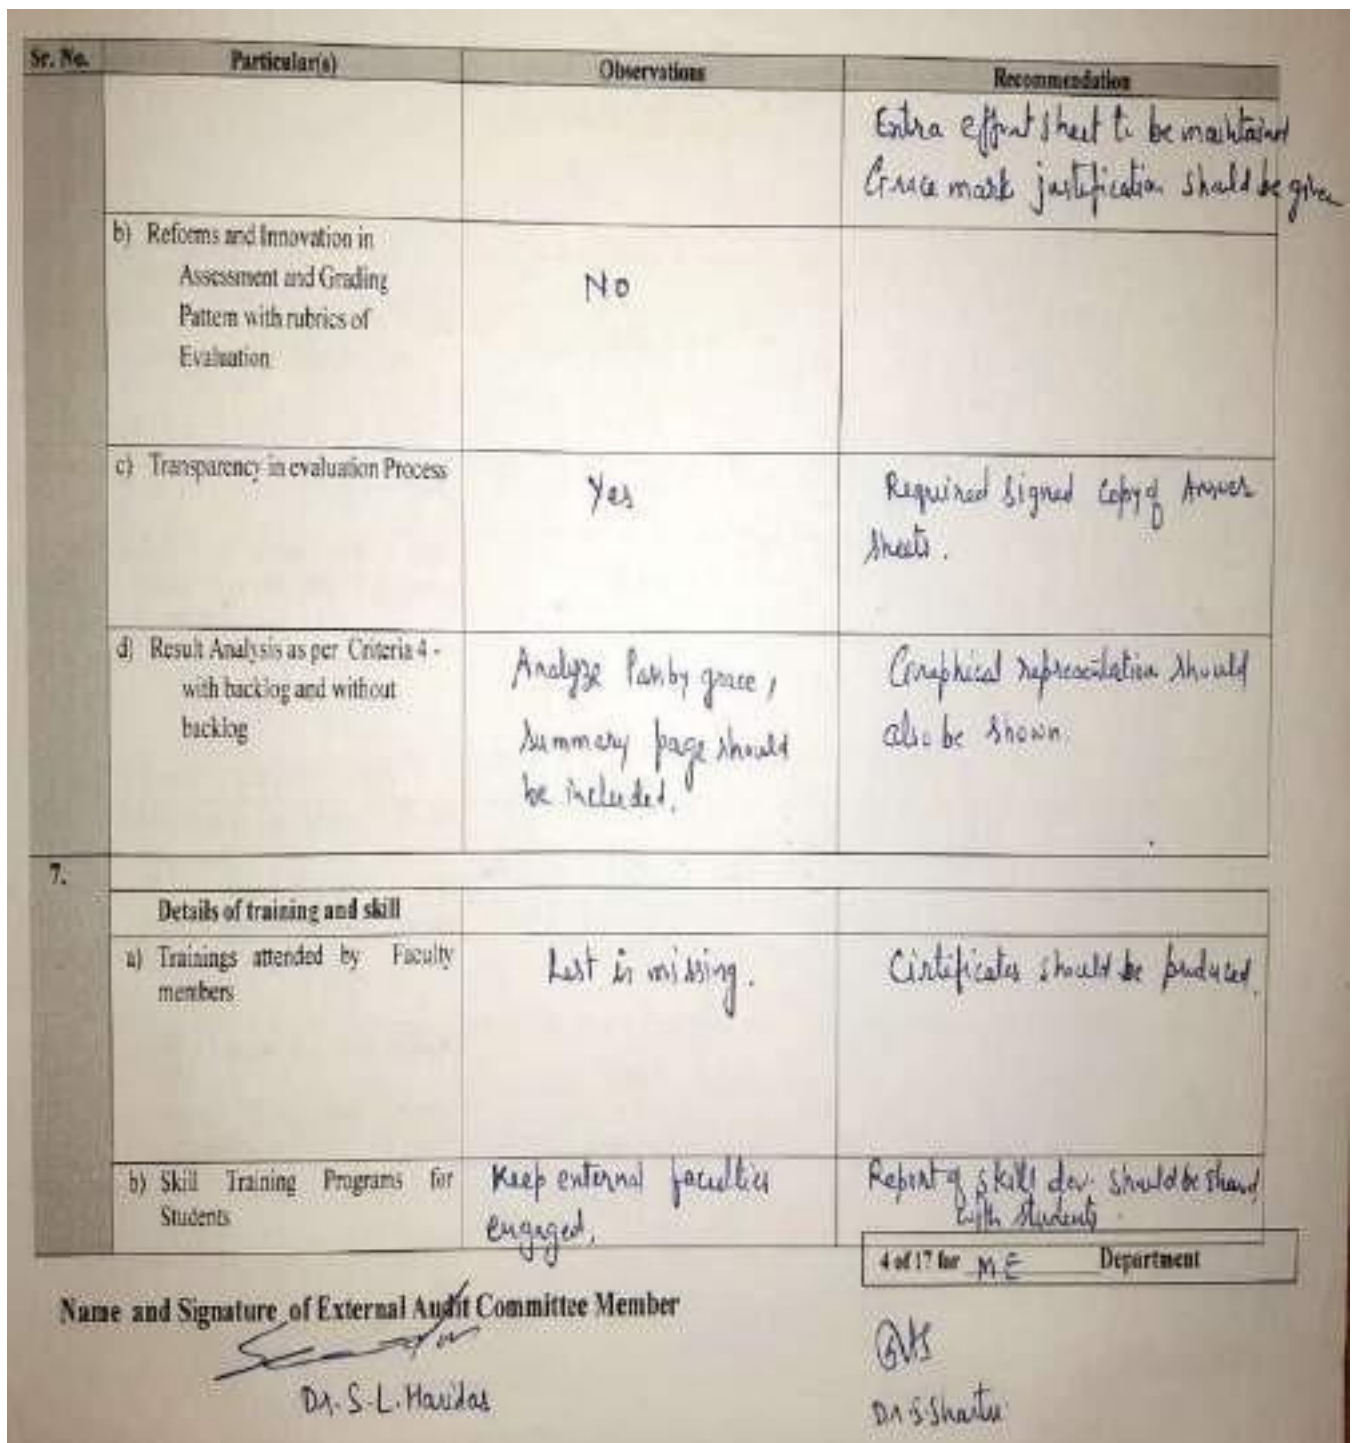 Sr. No. Particular(s) Observations Recommendation
Extra effort sheet to be maintained
Grace mark justification should be given
b) Reforms and Innovation in
Assessment and Grading
Pattern with rubrics of
Evaluation
No
c) Transparency in evaluation Process
Yes
Required signed copy of Answer
sheets.
d) Result Analysis as per Criteria 4 -
with backlog and without
backlog
Analyze Pass by grace,
summary page should
be included.
Graphical representation should
also be shown.
7.
Details of training and skill
a) Trainings attended by Faculty
members
List is missing.
Certificates should be produced.
b) Skill Training Programs for
Students
Keep external faculties
engaged.
Report of skill dev. should be shared
with students.
4 of 17 for ME Department
Name and Signature of External Audit Committee Member
Dr. S. L. Haridas
Dr. S.